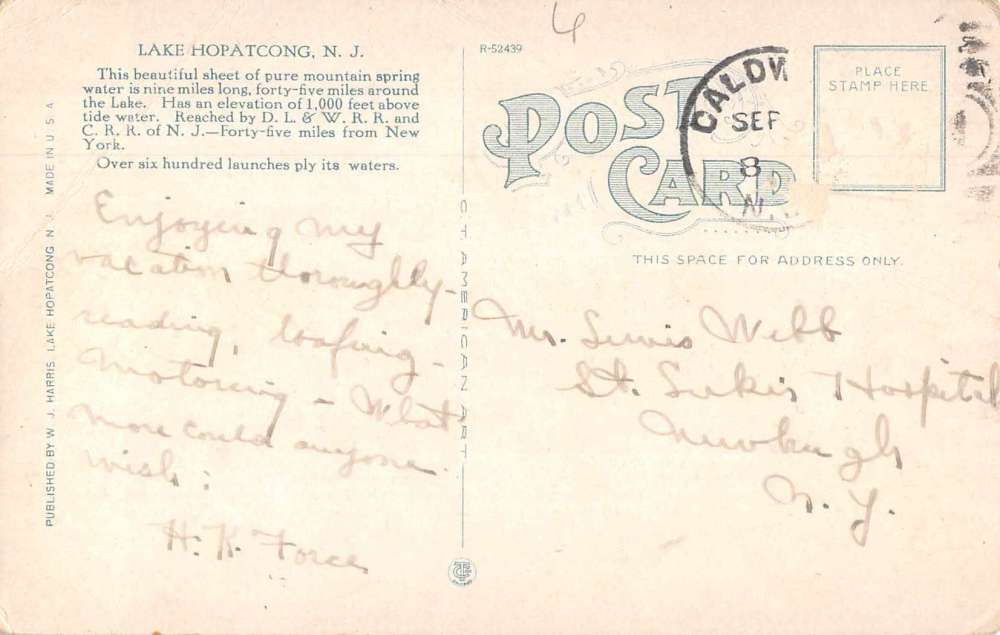 LAKE HOPATCONG, N. J.
This beautiful sheet of pure mountain spring
water is nine miles long, forty-five miles around
the Lake. Has an elevation of 1,000 feet above
tide water. Reached by D. L. & W. R. R. and
C. R. R. of N. J.—Forty-five miles from New
York.
Over six hundred launches ply its waters.
Enjoying my
vacation thoroughly-
reading, loafing-
motoring - What
more could anyone
wish:
H. K. Force
PUBLISHED BY W. J. HARRIS, LAKE HOPATCONG, N. J. MADE IN U S A
C. T. AMERICAN ART
R-52439
6
POST
CARD
CALDW
SEP
8
N.
PLACE
STAMP HERE
THIS SPACE FOR ADDRESS ONLY.
Mr. Lewis Webb
St. Lukes Hospital
Newburgh
N. Y.